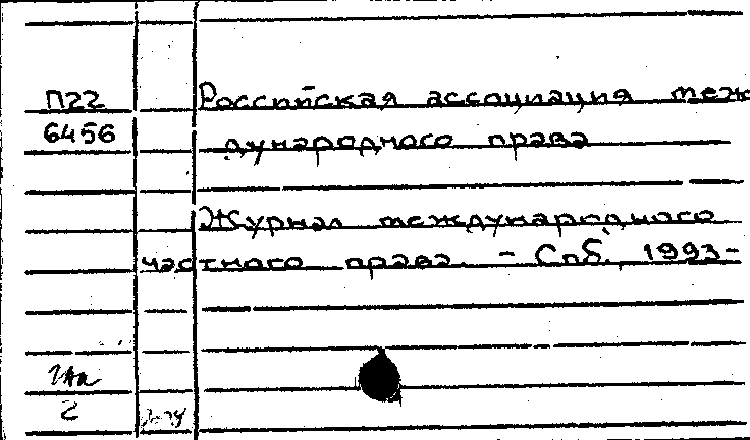 П22 Российская ассоциация меж
6456 дународного права
Журнал международного
частного права. - Спб., 1993-
2